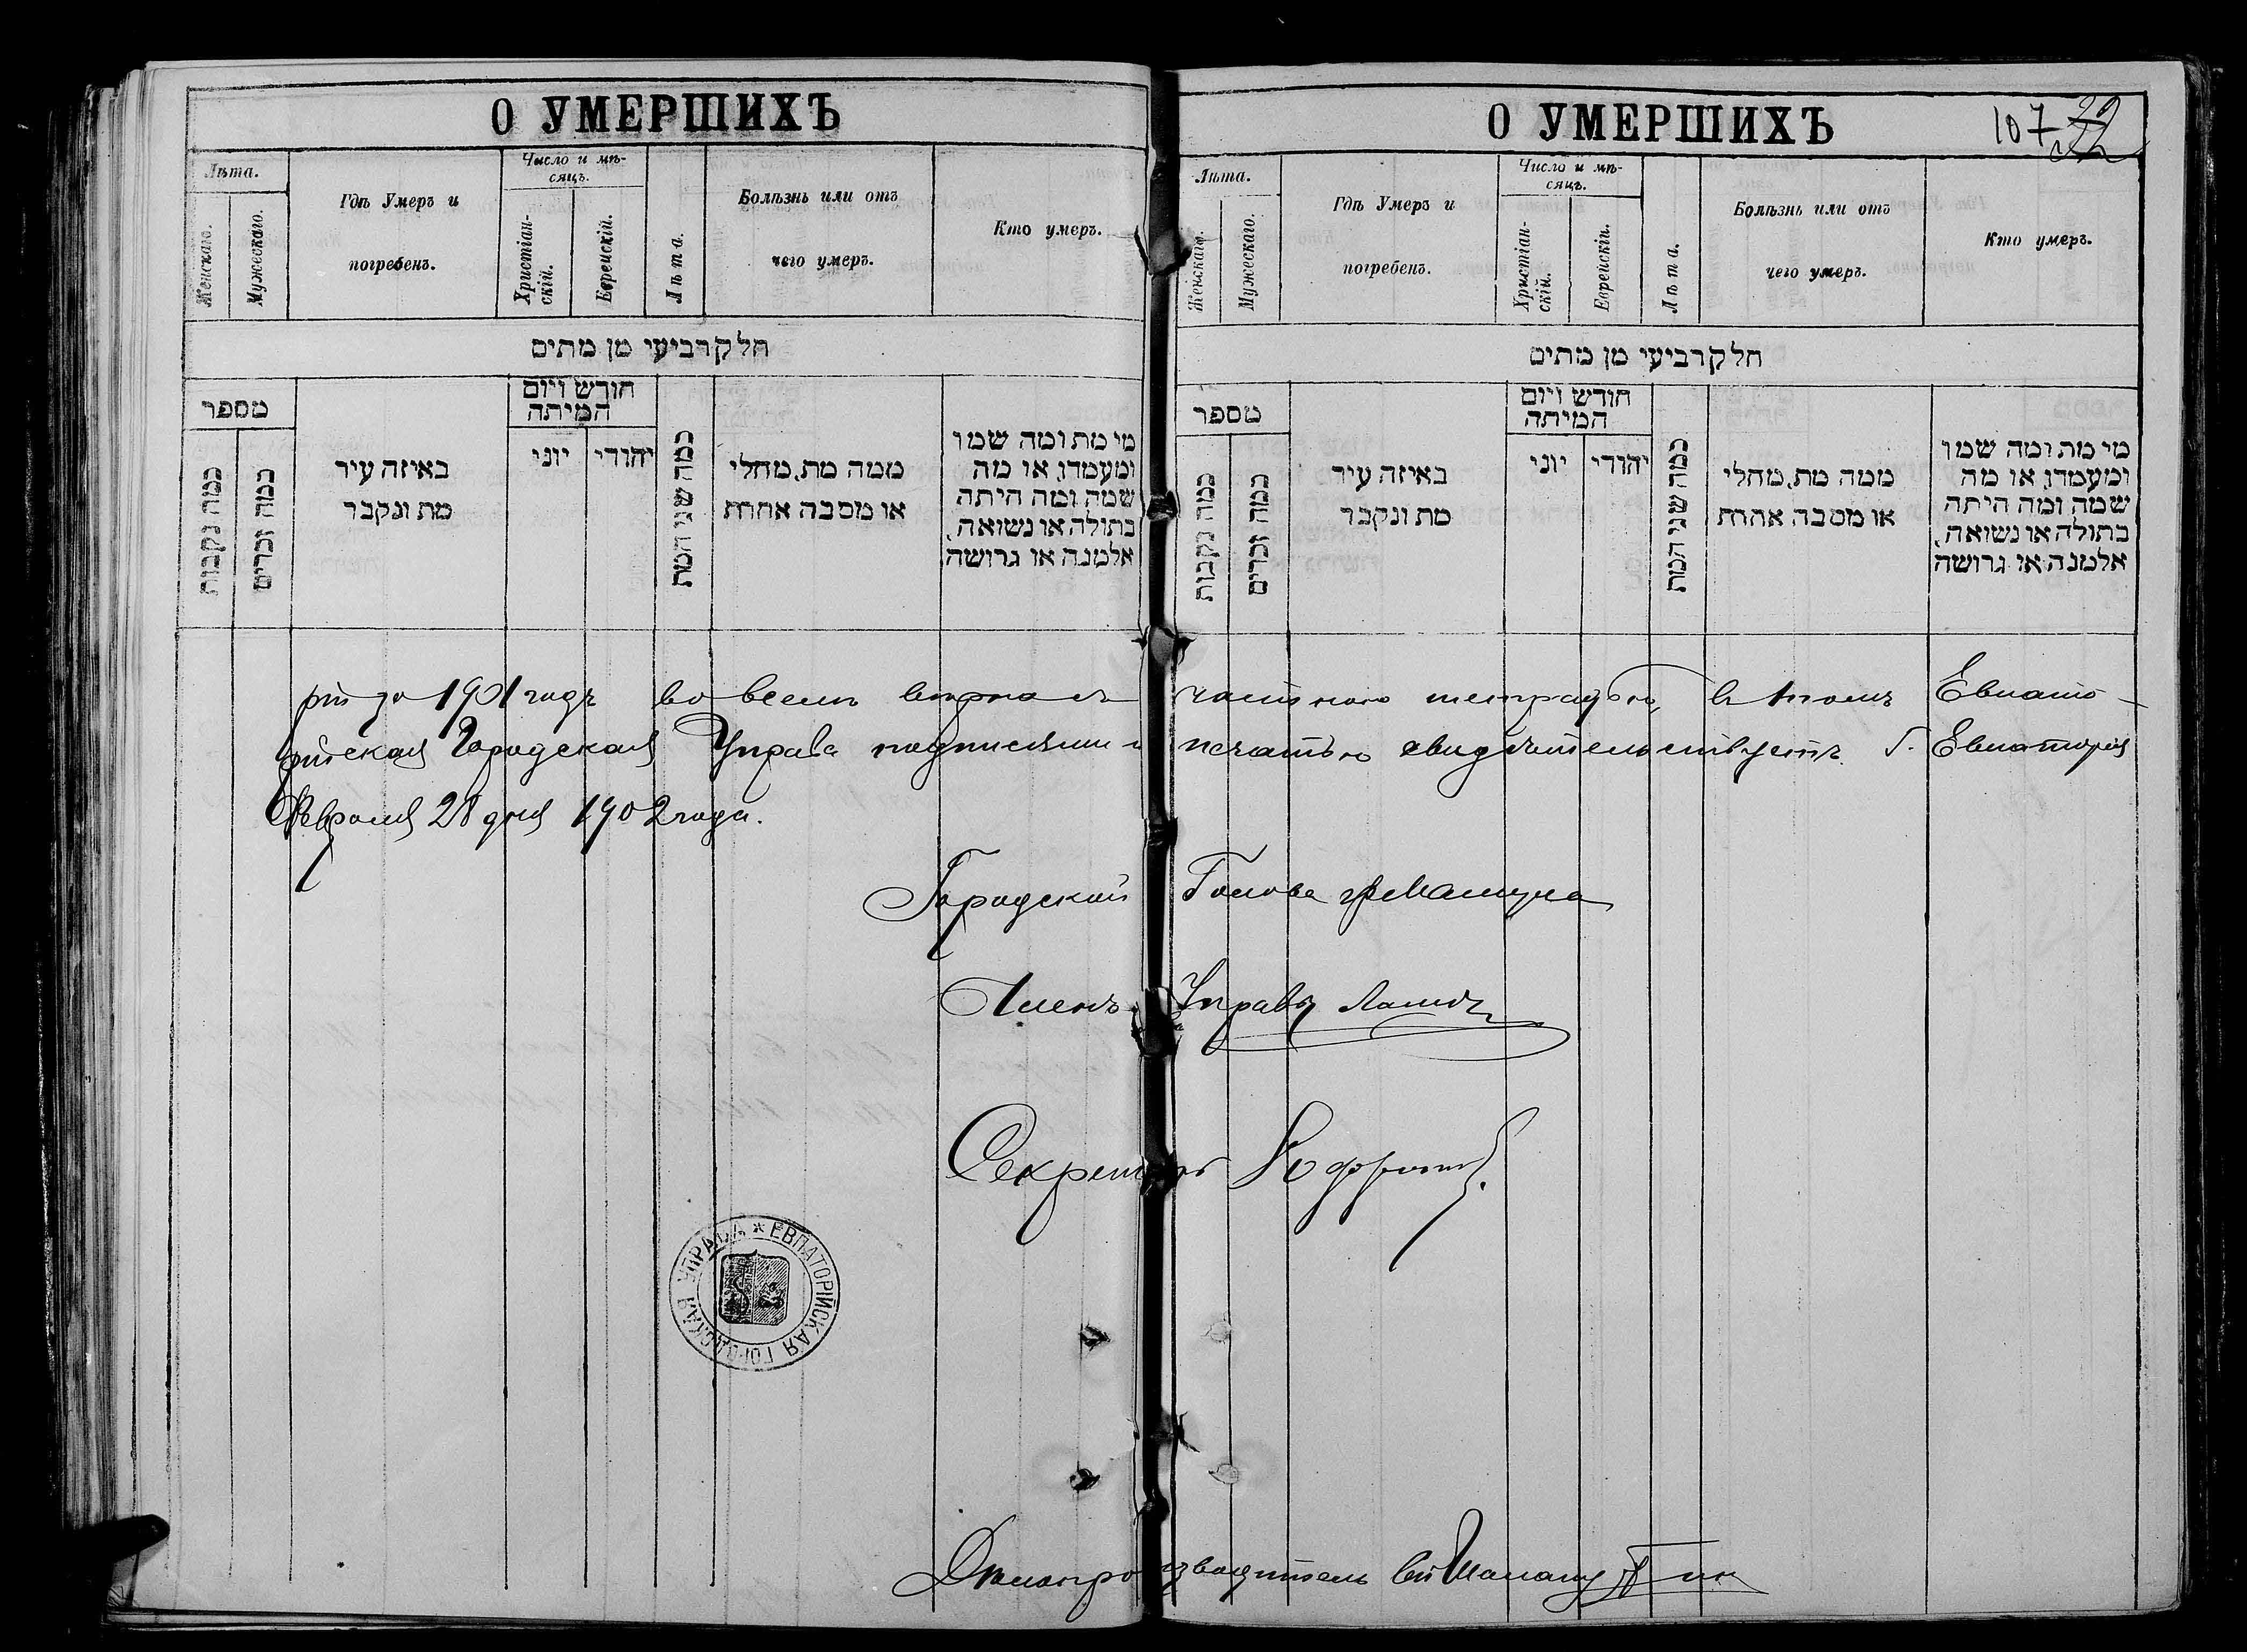 О УМЕРШИХЪ
Лѣта.
Женскаго.
Мужескаго.
Гдѣ Умеръ и
погребенъ.
Число и мѣ-
сяцъ.
Христіан-
скій.
Еврейскій.
Лѣта.
Болѣзнь или отъ
чего умеръ.
Кто умеръ.
חלק רביעי מן מתים
מספר
כמה נקבות
כמה זכרים
באיזה עיר
מת ונקבר
חודש ויום
המיתה
יוני
יהודי
כמה שני המת
ממה מת, מחלי
או מסבה אחרת
מי מת ומה שמו
ומעמדו, או מה
שמה ומה היתה
בתולה או נשואה,
אלמנה או גרושה
О УМЕРШИХЪ
107
22
Лѣта.
Женскаго.
Мужескаго.
Гдѣ Умеръ и
погребенъ.
Число и мѣ-
сяцъ.
Христіан-
скій.
Еврейскій.
Лѣта.
Болѣзнь или отъ
чего умеръ.
Кто умеръ.
חלק רביעי מן מתים
מספר
כמה נקבות
כמה זכרים
באיזה עיר
מת ונקבר
חודש ויום
המיתה
יוני
יהודי
כמה שני המת
ממה מת, מחלי
או מסבה אחרת
מי מת ומה שמו
ומעמדו, או מה
שמה ומה היתה
בתולה או נשואה,
אלמנה או גרושה
ріи за 1901 годъ во всемъ вѣрна съ частною тетрадью, въ томъ Евпато-
рійская Городская Управа подписями и печатью свидѣтельствуетъ. г. Евпаторія
Февраля 28 дня 1902 года.
Городской Голова
Членъ Управы
Секретарь
ЕВПАТОРІЙСКАЯ ГОРОДСКАЯ УПРАВА
Дѣлопроизводитель